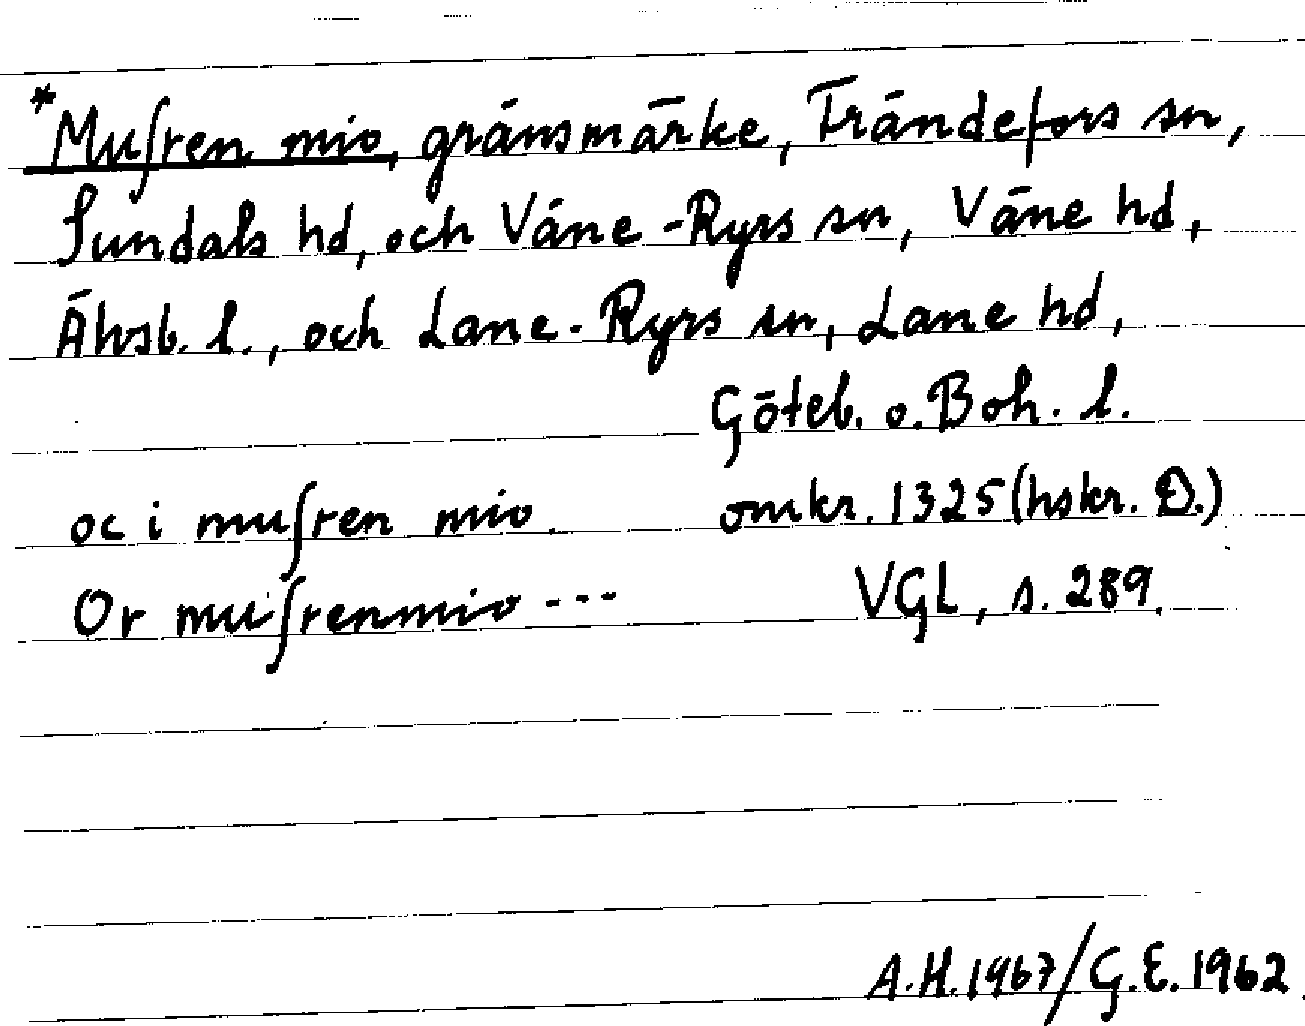 *Muſren mio, gränsmärke, Frändefors sn,
Sundals hd, och Väne-Ryrs sn, Väne hd,
Älvsb. l., och Lane-Ryrs sn, Lane hd,
Göteb. o. Boh. l.
oc i muſren mio. omkr. 1325 (hskr. D.)
Or muſrenmio --- VGL, s. 289.
A.H. 1967/G.E. 1962